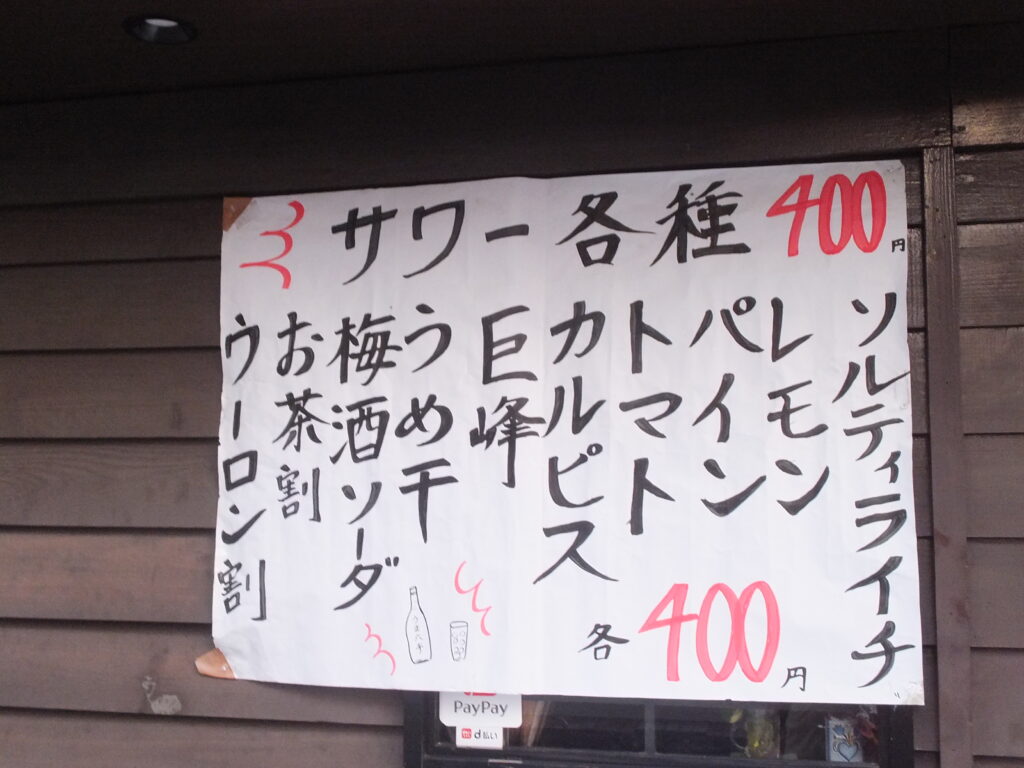 サワー各種 400円
ソルティライチ
レモン
パイン
トマト
カルピス
巨峰
うめ干
梅酒ソーダ
お茶割
ウーロン割
各400円
PayPay
d払い